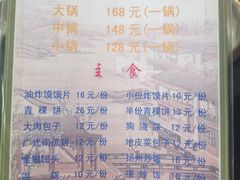 大锅 168元(一锅)
中锅 148元(一锅)
小锅 128元(一锅)
主食
油炸馍馍片 16元/份 小份炸馍片 10元/份
青稞饼 26元/份 半份青稞饼 13元/份
大肉包子 12元/份 狗浇尿 12元/份
广式南瓜饼 12元/份 地皮菜包子 15元/份
金银馒头 12元/份 扬州炒饭 16元/份